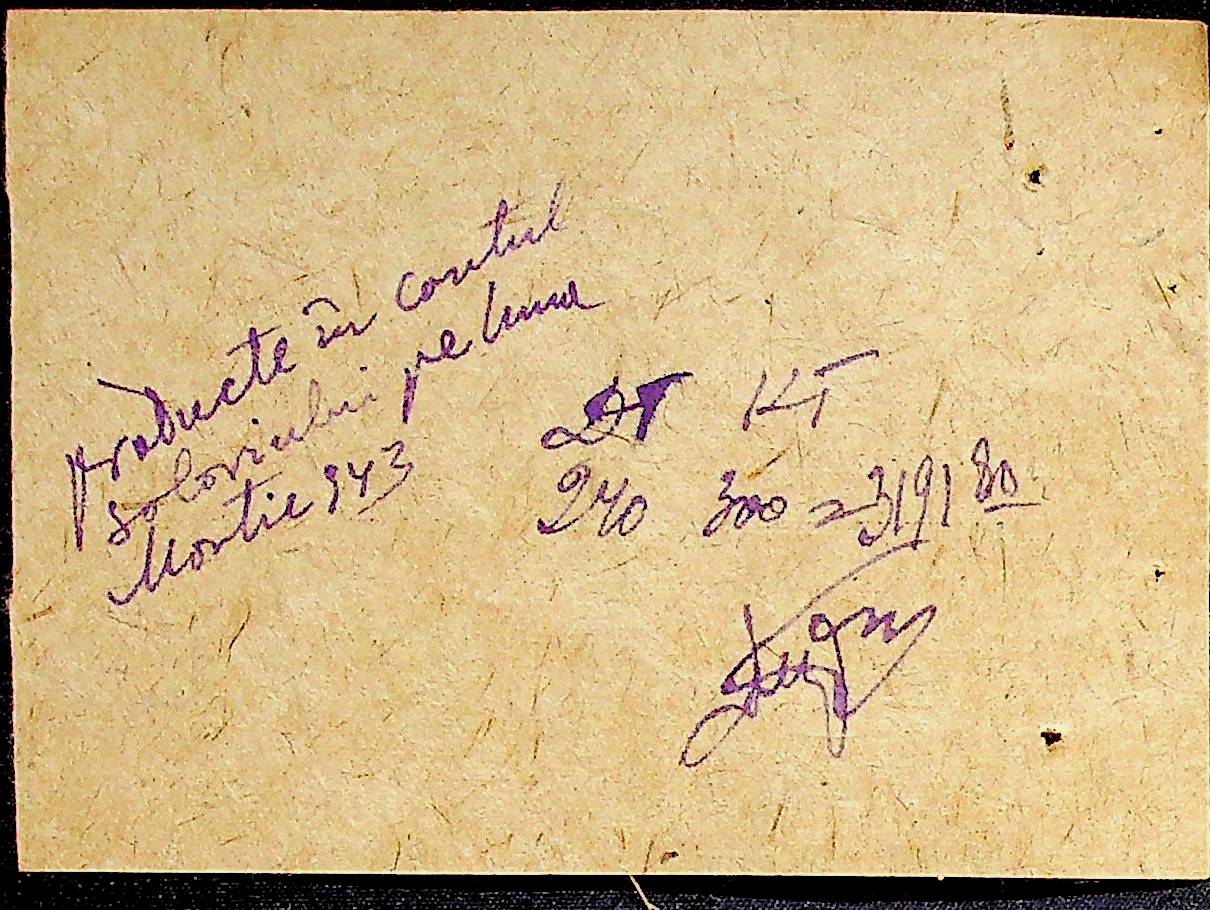 producte în contul
solariului pe luna
Martie 943
DT KT
240 300 = 3191 80